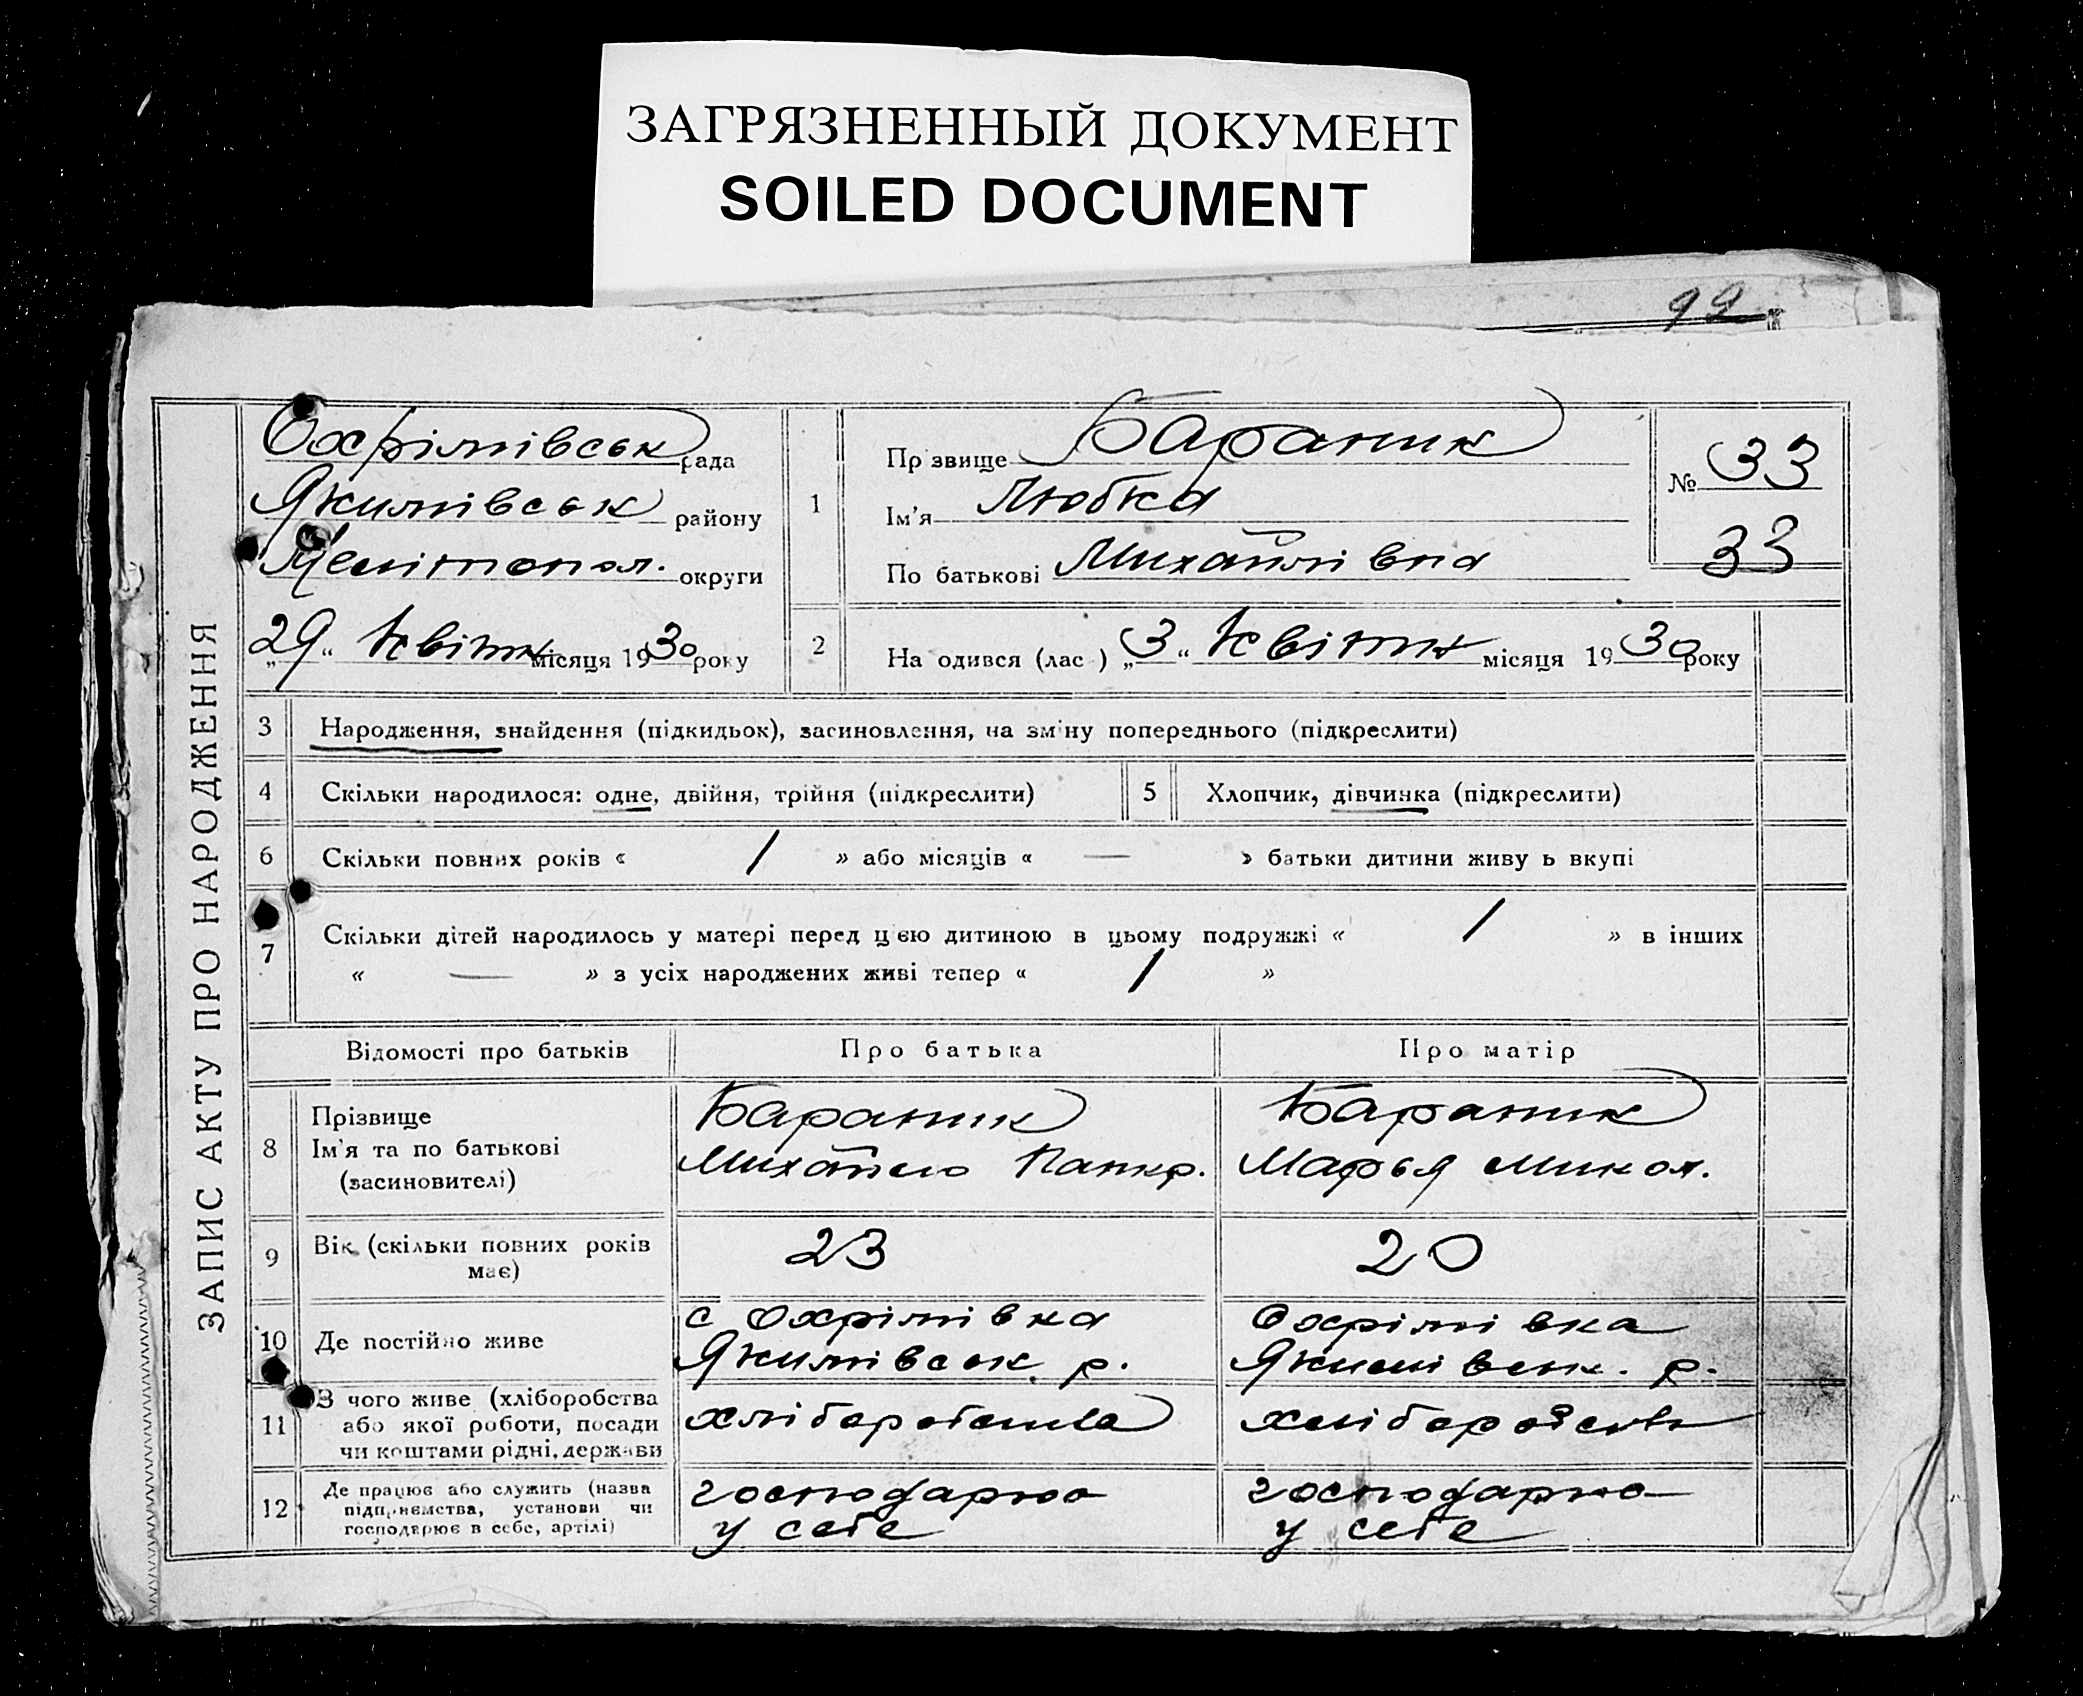 ЗАГРЯЗНЕННЫЙ ДОКУМЕНТ
SOILED DOCUMENT
99
ЗАПИС АКТУ ПРО НАРОДЖЕННЯ
Охрімівськ рада
Якимівськ району
Мелітопол. округи
„29“ Квітн місяця 1930 року
1
Пр звище Бараник
Ім'я Любка
По батькові Михайлівна
№ 33
33
2
На одився (лас ) „3“ Квітн місяця 1930 року
3 Народження, знайдення (підкидьок), засиновлення, на зміну попереднього (підкреслити)
4 Скільки народилося: одне, двійня, трійня (підкреслити)
5 Хлопчик, дівчинка (підкреслити)
6 Скільки повних років « 1 » або місяців « — » батьки дитини живу ь вкупі
7 Скільки дітей народилось у матері перед цією дитиною в цьому подружжі « 1 » в інших
« — » з усіх народжених живі тепер « 1 »
Відомості про батьків Про батька Про матір
8 Прізвище
Ім'я та по батькові
(засиновителі)
Бараник
Михайло Панкр.
Бараник
Марья Микол.
9 Вік (скільки повних років
має)
23
20
10 Де постійно живе
с Охрімівка
Якимівськ. р.
Охрімівка
Якимівськ. р.
11 З чого живе (хліборобства
або якої роботи, посади
чи коштами рідні, держави
хліборобства
хліборобств
12 Де працює або служить (назва
підприємства, установи чи
господарює в себе, артілі)
господарюо
у себе
господарює
у себе